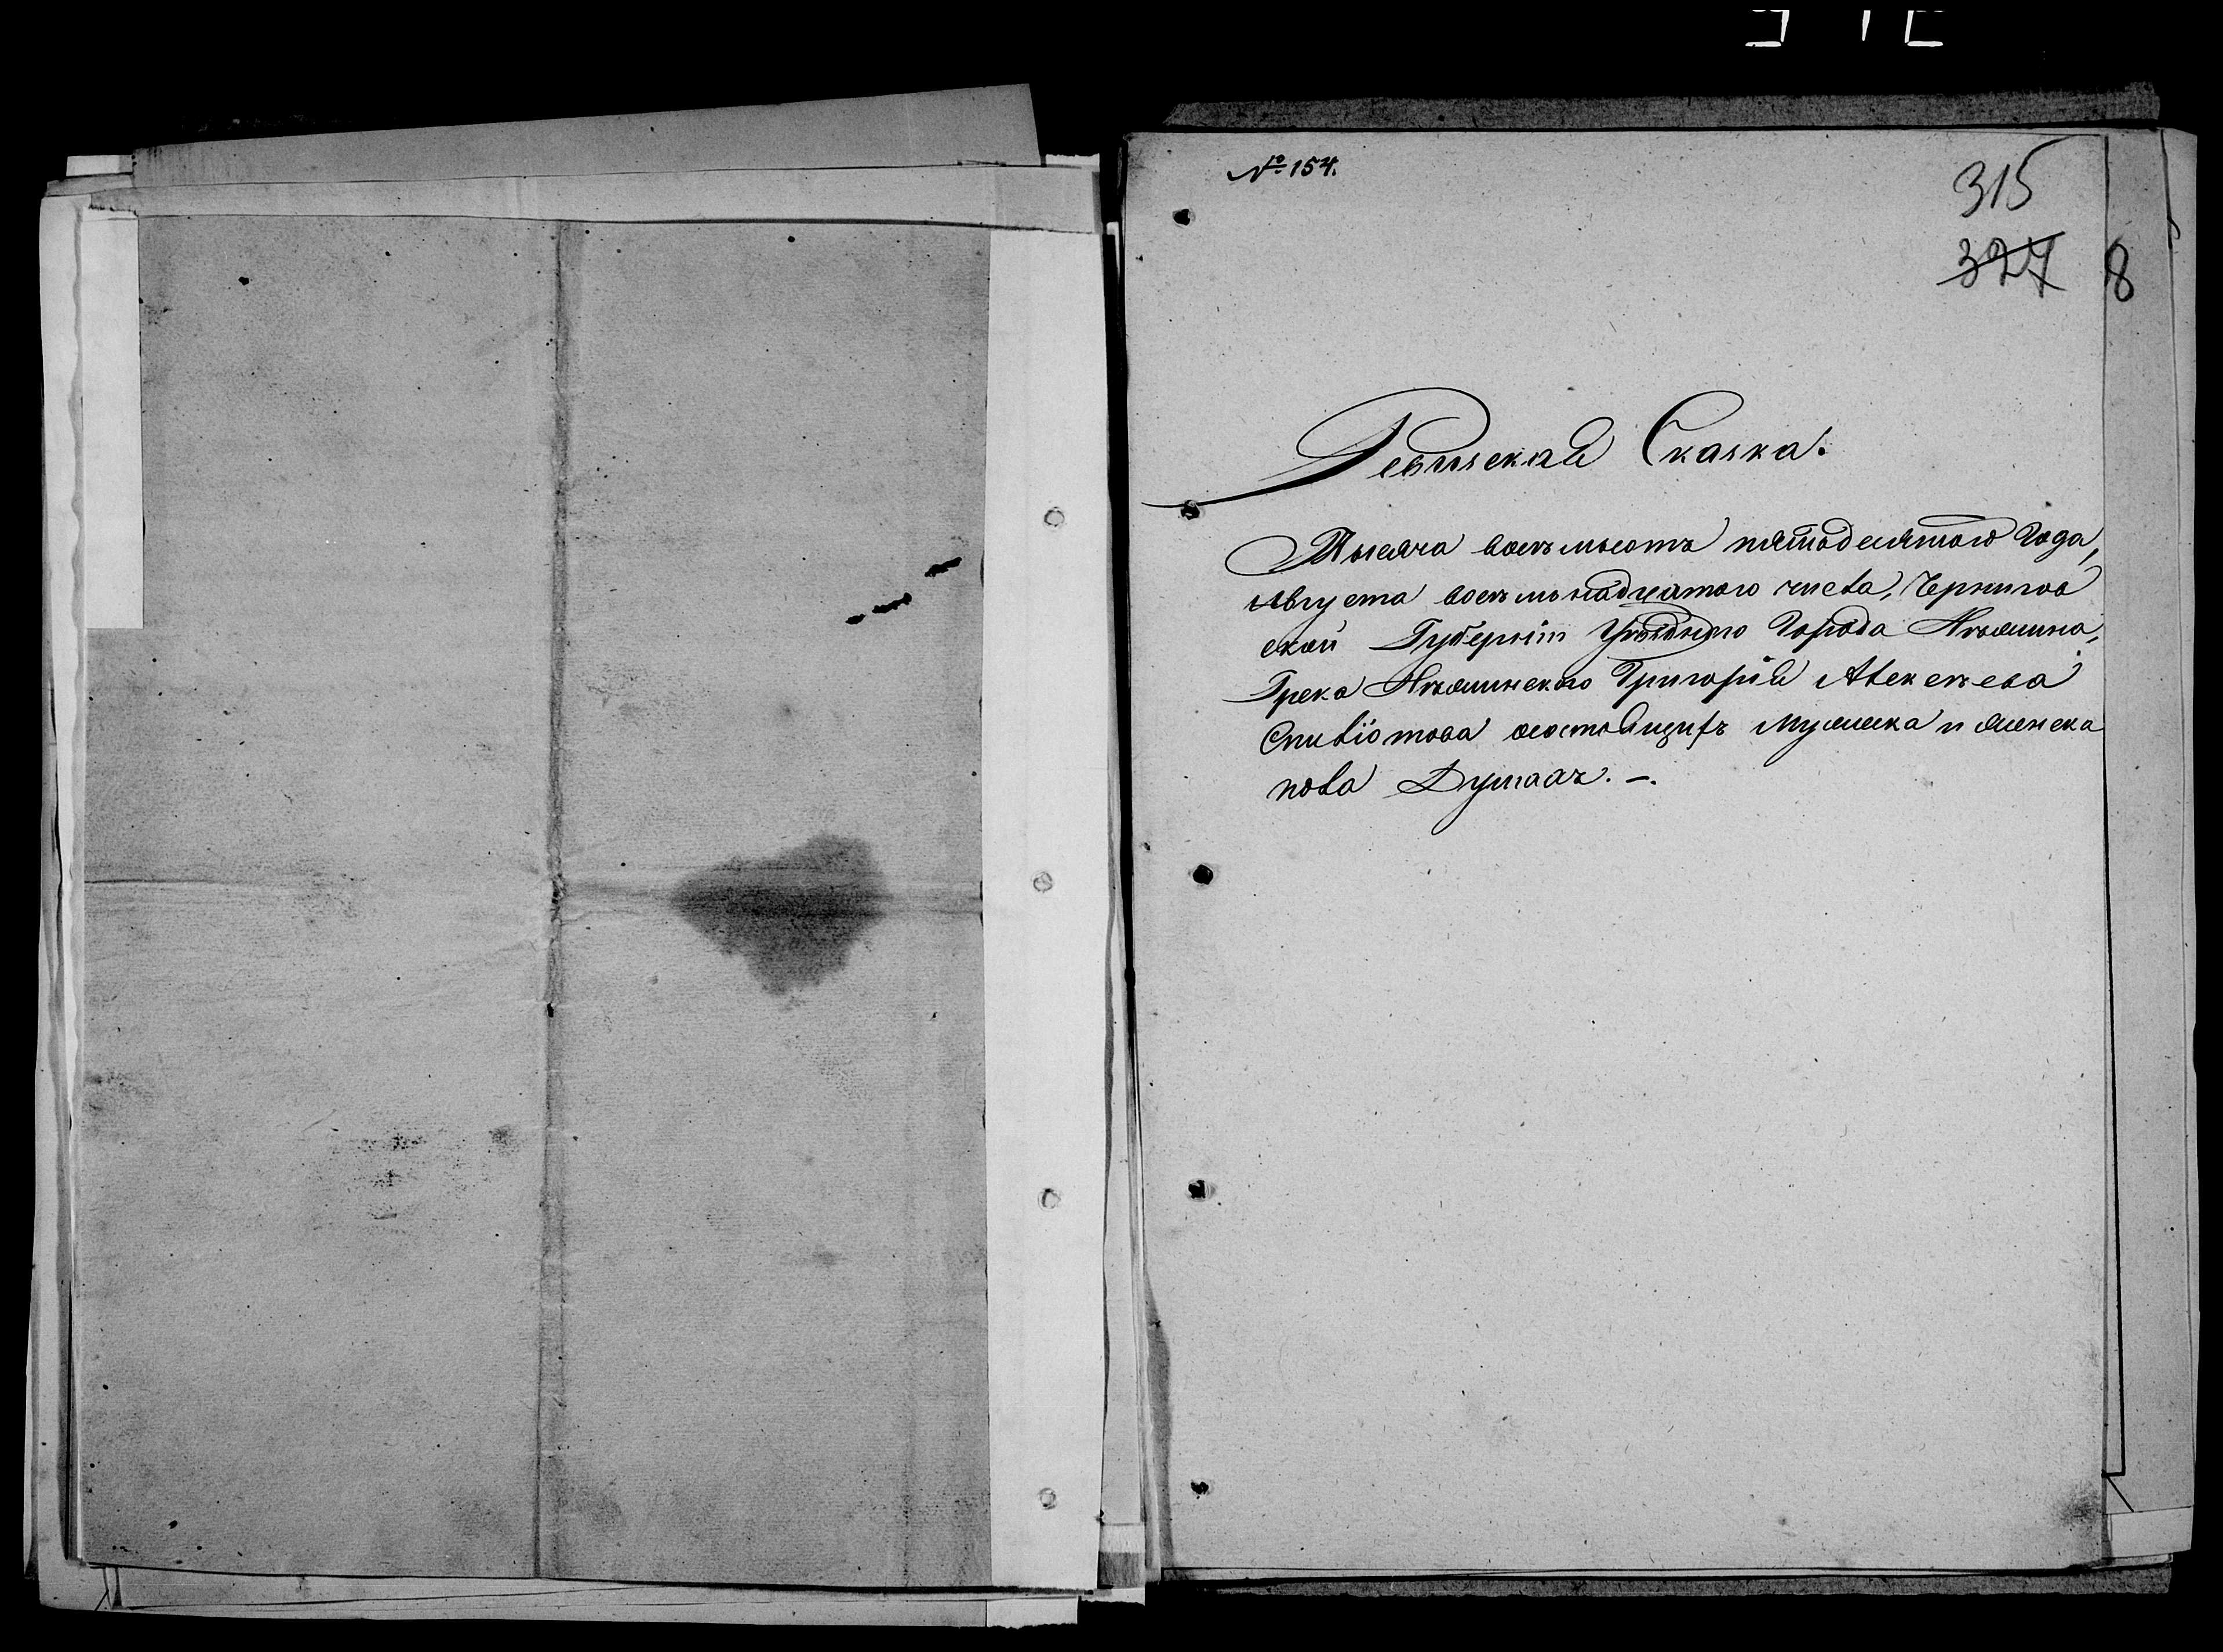 № 154.
315
327 8
Ревизская Сказка.
Тысяча восемьсотъ пятьдесятого Года,
Августа восемьнадцатого числа, Чернигов
ской Губерніи Уѣзднаго Города Нѣжина,
Грека Нѣжинского Григорія Алексѣева
мужеска и женска
пола Душахъ. —.